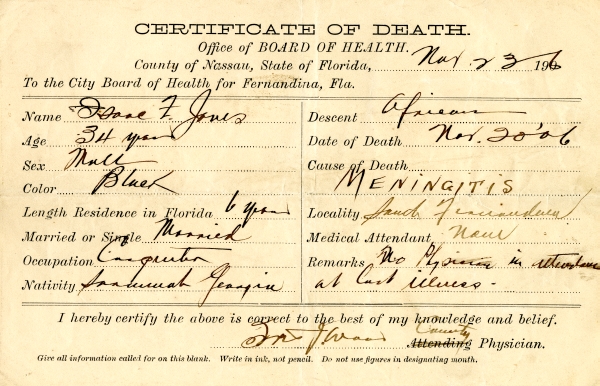 CERTIFICATE OF DEATH.
Office of BOARD OF HEALTH.
County of Nassau, State of Florida, Nov. 23 1906
To the City Board of Health for Fernandina, Fla.
Name Isaac F. Jones
Age 34 years
Sex Male
Color Black
Length Residence in Florida 6 years
Married or Single Married
Occupation Carpenter
Nativity Savannah Georgia
Descent African
Date of Death Nov. 20 '06
Cause of Death
MENINGITIS
Locality South Fernandina
Medical Attendant None
Remarks No Physician in attendance
at last illness.
I hereby certify the above is correct to the best of my knowledge and belief.
County
Attending Physician.
Give all information called for on this blank. Write in ink, not pencil. Do not use figures in designating month.